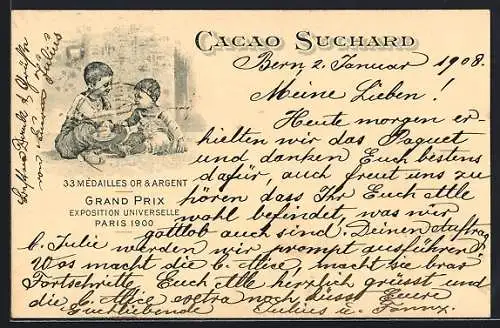 CACAO SUCHARD
Bern, 2. Januar 1908.
Meine Lieben!
Heute morgen er-
hielten wir das Paquet
und danken Euch bestens
dafür, auch freut uns zu
hören dass Ihr Euch Alle
wohl befindet, was wir
gottlob auch sind. Deinen Auftrag
l. Julie werden wir prompt ausführen.
Was macht die l. Alice, macht sie brav
Fortschritte. Euch Alle herzlich grüsst und
die l. Alice extra noch küsst Eure
Euch liebende Julius u. Fanny.
33 MÉDAILLES OR & ARGENT
GRAND PRIX
EXPOSITION UNIVERSELLE
PARIS 1900
& Grüsse
von Julius